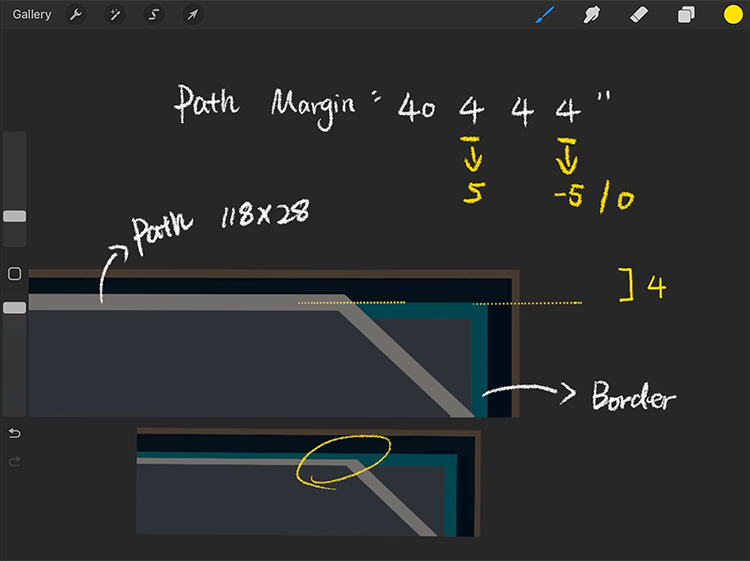 Gallery
Path Margin = 40 4 4 4 "
5 -5/0
Path 118x28
] 4
Border